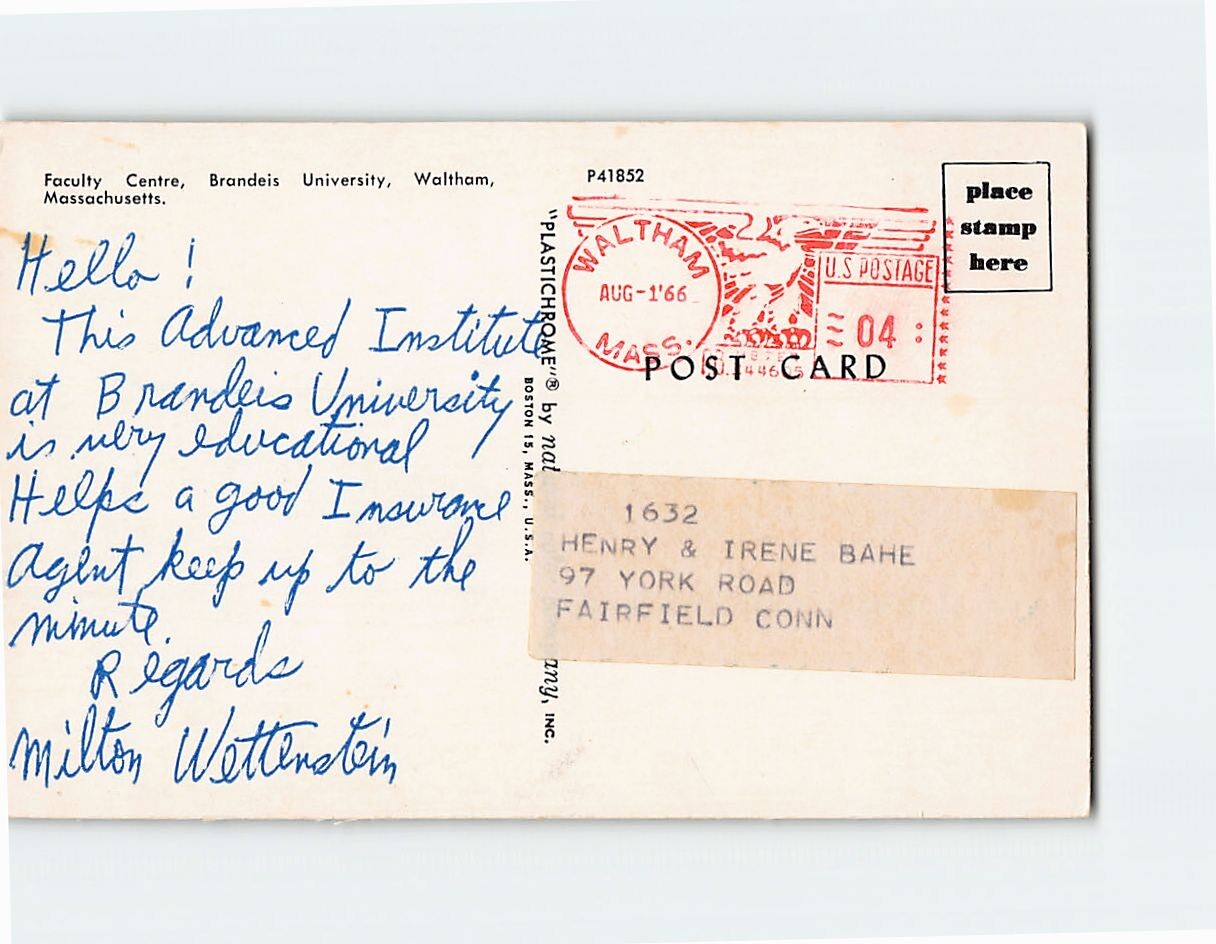 Faculty Centre, Brandeis University, Waltham,
Massachusetts.
Hello!
This Advanced Institute
at Brandeis University
is very educational
Helps a good Insurance
Agent keep up to the
minute.
Regards
Milton Wettenstein
"PLASTICHROME"® by
BOSTON 15, MASS., U.S.A.
INC.
P41852
WALTHAM
AUG-1'66
MASS.
U.S POSTAGE
04
place
stamp
here
POST CARD
1632
HENRY & IRENE BAHE
97 YORK ROAD
FAIRFIELD CONN